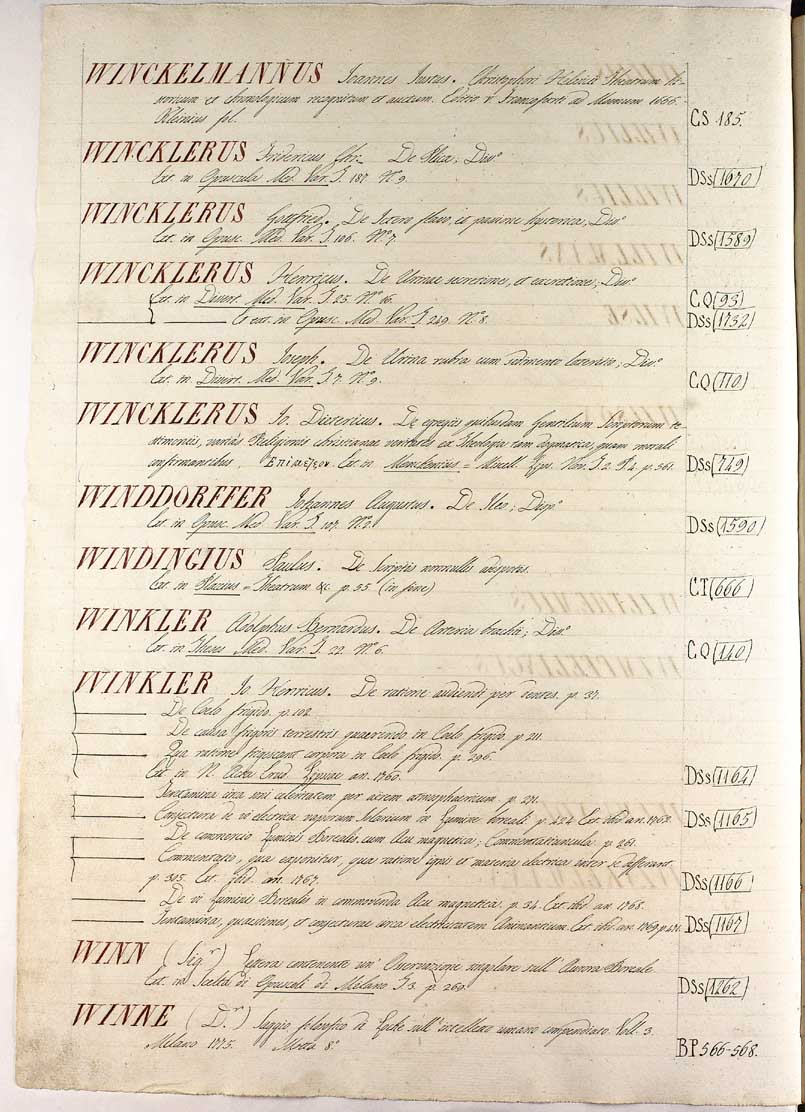 WINCKELMANNUS Joannes Justus. Christophori Helvici Theatrum hi-
storicum et chronologicum recognitum et auctum. Editio V. Francofurti ad Moenum 1666.
Kleinius fol. CS 185.
WINCKLERUS Fridericus Chr. De Plica; Diss.
Ext. in Opuscula Med. Var. T. 187. N.º 9. DSs (1670)
WINCKLERUS Gotfried. De Ictero flavo, et passione hysterica, Diss.
Ext. in Opusc. Med. Var. T. 106. N.º 7. DSs (1589)
WINCKLERUS Henricus. De Urinae secretione, et excretione; Diss.
Ext. in Dissert. Med. Var. T. 25. N.º 16. C.Q (93)
Et ext. in Opusc. Med. Var. T. 249. N.º 8. DSs (1732)
WINCKLERUS Joseph. De Urina rubra cum sedimento lateritio; Diss.
Ext. in Dissert. Med. Var. T. 7. N.º 9. C.Q (110)
WINCKLERUS Jo. Dietericus. De egregiis quibusdam Gentilium Scriptorum te-
stimoniis, variis Religionis christianae veritates ex Theologia tam dogmatica, quam morali
confirmantibus. Ext. in Menckenius = Miscell. Lips. Nov. T. 2. P. 4. p. 561. DSs (749)
WINDDORFFER Johannes Augustus. De Ileo; Disp.
Ext. in Opusc. Med. Var. T. 107. N.º 2. DSs (1590)
WINDINGIUS Paulus. De Scriptis nonnullis adespotis.
Ext. in Placius = Theatrum &c. p. 35 (in fine) C.T (666)
WINKLER Adolphus Bernardus. De Arteria brachii; Diss.
Ext. in Theses Med. Var. T. 22. N.º 6. C.Q (140)
WINKLER Jo. Henricus. De ratione audiendi per dentes. p. 37.
De Coelo frigido. p. 102.
De causa frigoris terrestris quaerenda in Coelo frigido. p. 211.
Qua ratione frigescant corpora in Coelo frigido. p. 296.
Ext. in N. Acta Erud. Lipsiae an. 1760. DSs (1164)
Tentamina circa soni celeritatem per aërem atmosphaericum. p. 271.
Conjectura de vi electrica vaporum Solarium in Lumine boreali. p. 424 Ext. ibid. an. 1763. DSs (1165)
De commercio Luminis Borealis cum Acu magnetica; Commentatiuncula p. 261.
Commentatio, qua exponitur, qua ratione ignis et materia electrica inter se differant
p. 315. Ext. ibid. an. 1767. DSs (1166
De vi Luminis Borealis in commovenda Acu magnetica. p. 34. Ext. ibid. an. 1768.
Tentamina, quaestiones, et conjecturae circa electricitatem Animantium. Ext. ibid. an. 1769 p. 471. DSs (1167)
WINN (Sig.r) Lettera contenente un' Osservazione singolare sull' Aurora Boreale
Ext. in Scelta di Opuscoli di Milano T. 3. p. 269. DSs (1262)
WINNE (D.r) Saggio filosofico di Locke sull' intelletto umano compendiato. Voll. 3.
Milano 1775. Motta 8.º BP 566-568.